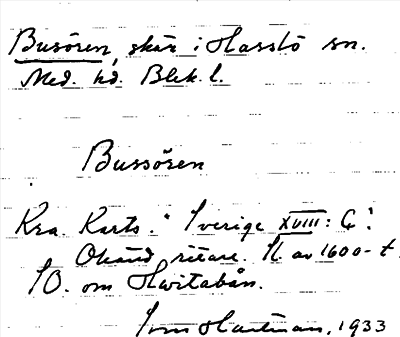 Busören, skär i Hasslö sn.
Med. hd. Blek. l.
Bussören
Kra. Karts. "Sverige XVIII: G".
Okänd ritare. Sl. av 1600-t.
SO. om Hwitabån.
Hartman, 1933